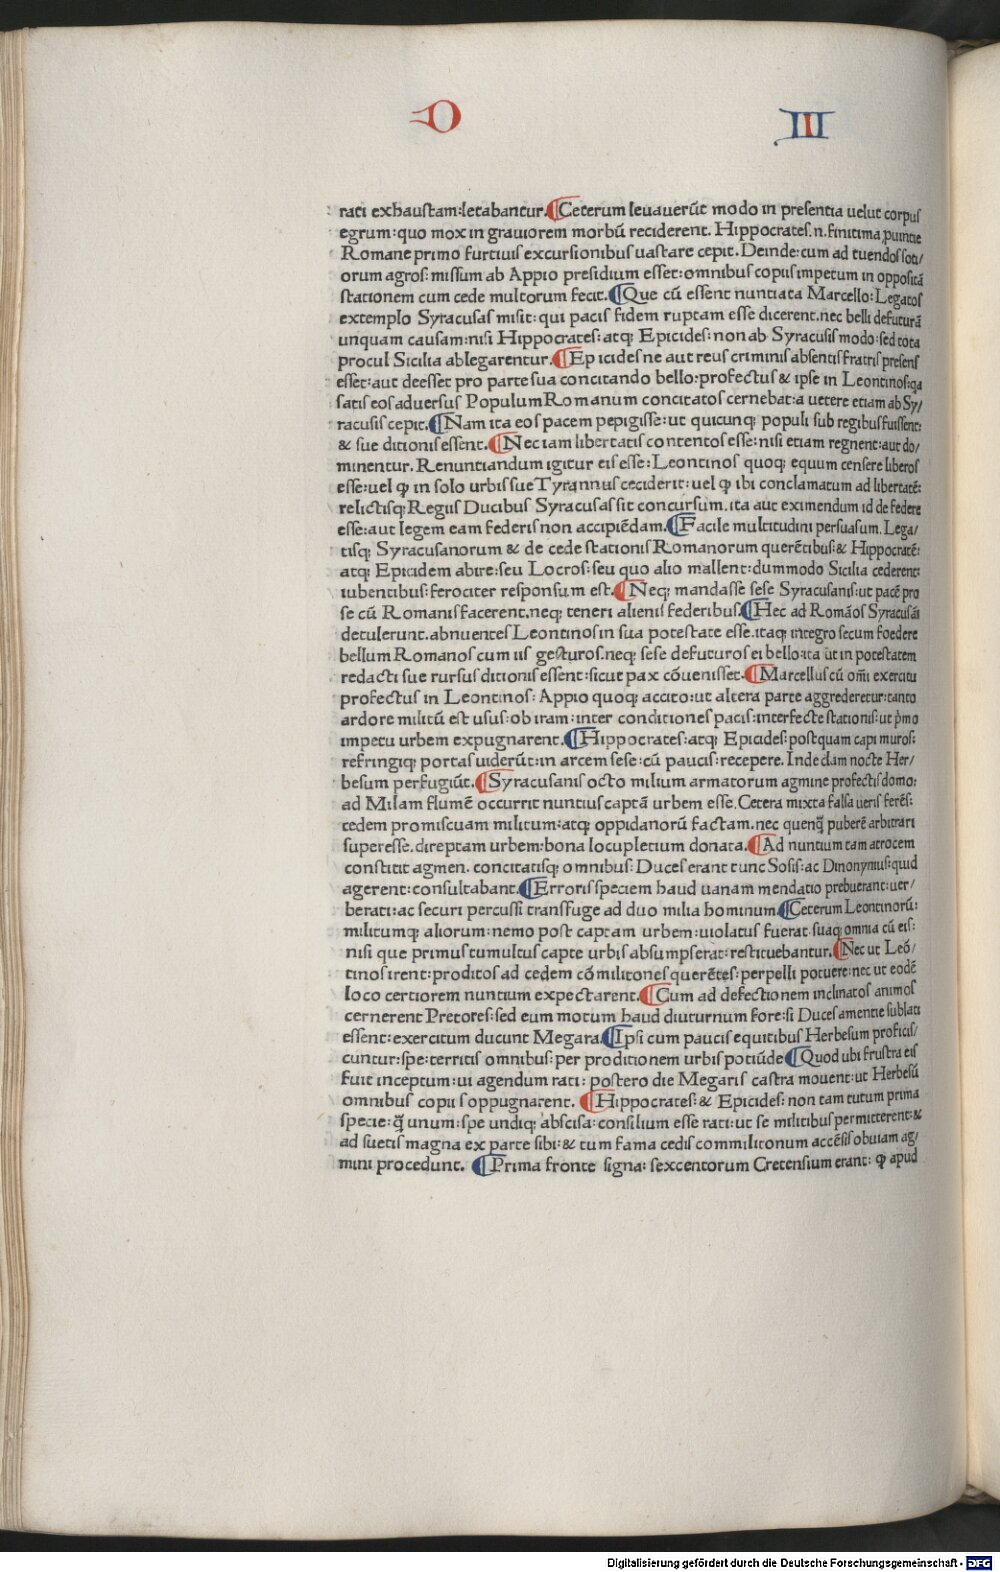 D III
rati exhaustam:letabantur.¶Ceterum levaverūt modo in presentia uelut corpus
egrum:quo mox in graviorem morbū reciderent. Hippocrates.n.finitima ꝓuintie
Romane primo furtiuis excursionibus uastare cepit. Deinde:cum ad tuendos soti/
orum agros:missum ab Appio presidium esset:omnibus copiis impetum in oppositā
stationem cum cede multorum fecit.¶Que cū essent nuntiata Marcello:Legatos
extemplo Syracusas misit:qui pacis fidem ruptam esse dicerent.nec belli defuturā
unquam causam:nisi Hippocrates:atqꝫ Epicides:non ab Syracusis modo:sed tota
procul Sicilia ablegarentur.¶Epicides ne aut reus criminis absentis fratris presens
esset:aut deesset pro parte sua concitando bello:profectus & ipse in Leontinos:qa
satis eos aduersus Populum Romanum concitatos cernebat:a uetere etiam ab Sy/
racusis cepit.¶Nam ita eos pacem pepigisse:ut quicunqꝫ populi sub regibus fuissent:
& sue ditionis essent.¶Nec iam libertatis contentos esse:nisi etiam regnent:aut do/
minentur. Renuntiandum igitur eis esse:Leontinos quoqꝫ equum censere liberos
esse:uel ꝙ in solo urbis sue Tyrannus ceciderit:uel ꝙ ibi conclamatum ad libertatē:
relictisqꝫ Regiis Ducibus Syracusas sit concursum.ita aut eximendum id de federe
esse:aut legem eam federis non accipiēdam.¶Facile multitudini persuasum. Lega/
tisqꝫ Syracusanorum & de cede stationis Romanorum querētibus:& Hippocratē:
atqꝫ Epicidem abire:seu Locros:seu quo alio mallent:dummodo Sicilia cederent:
iubentibus:ferociter responsum est.¶Neqꝫ mandasse sese Syracusanis:ut pacē pro
se cū Romanis facerent.neqꝫ teneri alienis federibus.¶Hec ad Romāos Syracusāi
detulerunt.abnuentes Leontinos in sua potestate esse.itaqꝫ integro secum foedere
bellum Romanos cum iis gesturos.neqꝫ sese defuturos ei bello:ita ut in potestatem
redacti sue rursus ditionis essent:sicut pax cōuenisset.¶Marcellus cū omī exercitu
profectus in Leontinos: Appio quoqꝫ accito:ut altera parte aggrederetur:tanto
ardore militū est usus:ob iram:inter conditiones pacis:interfecte stationis:ut p̄mo
impetu urbem expugnarent.¶Hippocrates:atqꝫ Epicides:postquam capi muros:
refringiqꝫ portas uiderūt:in arcem sese:cū paucis:recepere. Inde clam nocte Her/
besum perfugiūt.¶Syracusanis octo milium armatorum agmine profectis domo:
ad Milam flumē occurrit nuntius captā urbem esse. Cetera mixta falsa ueris ferēs:
cedem promiscuam militum:atqꝫ oppidanorū factam.nec quenq̄ puberē arbitrari
superesse.direptam urbem:bona locupletium donata.¶Ad nuntium tam atrocem
constitit agmen. concitatisqꝫ omnibus: Duces erant tunc Sosis:ac Dinonyius:quid
agerent:consultabant.¶Erroris speciem haud uanam mendatio prebuerant:uer/
berati:ac securi percussi transfuge ad duo milia hominum.¶Ceterum Leontinorū:
militumqꝫ aliorum:nemo post captam urbem:uiolatus fuerat.suaqꝫ omnia cū eis:
nisi que primus tumultus capte urbis absumpserat:restituebantur.¶Nec ut Leō/
tinos irent:proditos ad cedem cōmilitones querētes:perpelli potuere:nec ut eodē
loco certiorem nuntium expectarent.¶Cum ad defectionem inclinatos animos
cernerent Pretores:sed eum motum haud diuturnum fore:si Duces amentie sublati
essent:exercitum ducunt Megara.¶Ipsi cum paucis equitibus Herbesum proficis/
cuntur:spe:territis omnibus:per proditionem urbis potiūde¶Quod ubi frustra eis
fuit inceptum:ui agendum rati: postero die Megaris castra mouent:ut Herbesū
omnibus copiis oppugnarent. ¶Hippocrates:& Epicides:non tam tutum prima
specie:q̄ unum:spe undiqꝫ abscisa:consilium esse rati:ut se militibus permitterent:&
ad suetis magna ex parte sibi:& tum fama cedis commilitonum accēsis obuiam ag/
mini procedunt. ¶Prima fronte signa:sexcentorum Cretensium erant: ꝙ apud
Digitalisierung gefördert durch die Deutsche Forschungsgemeinschaft - DFG